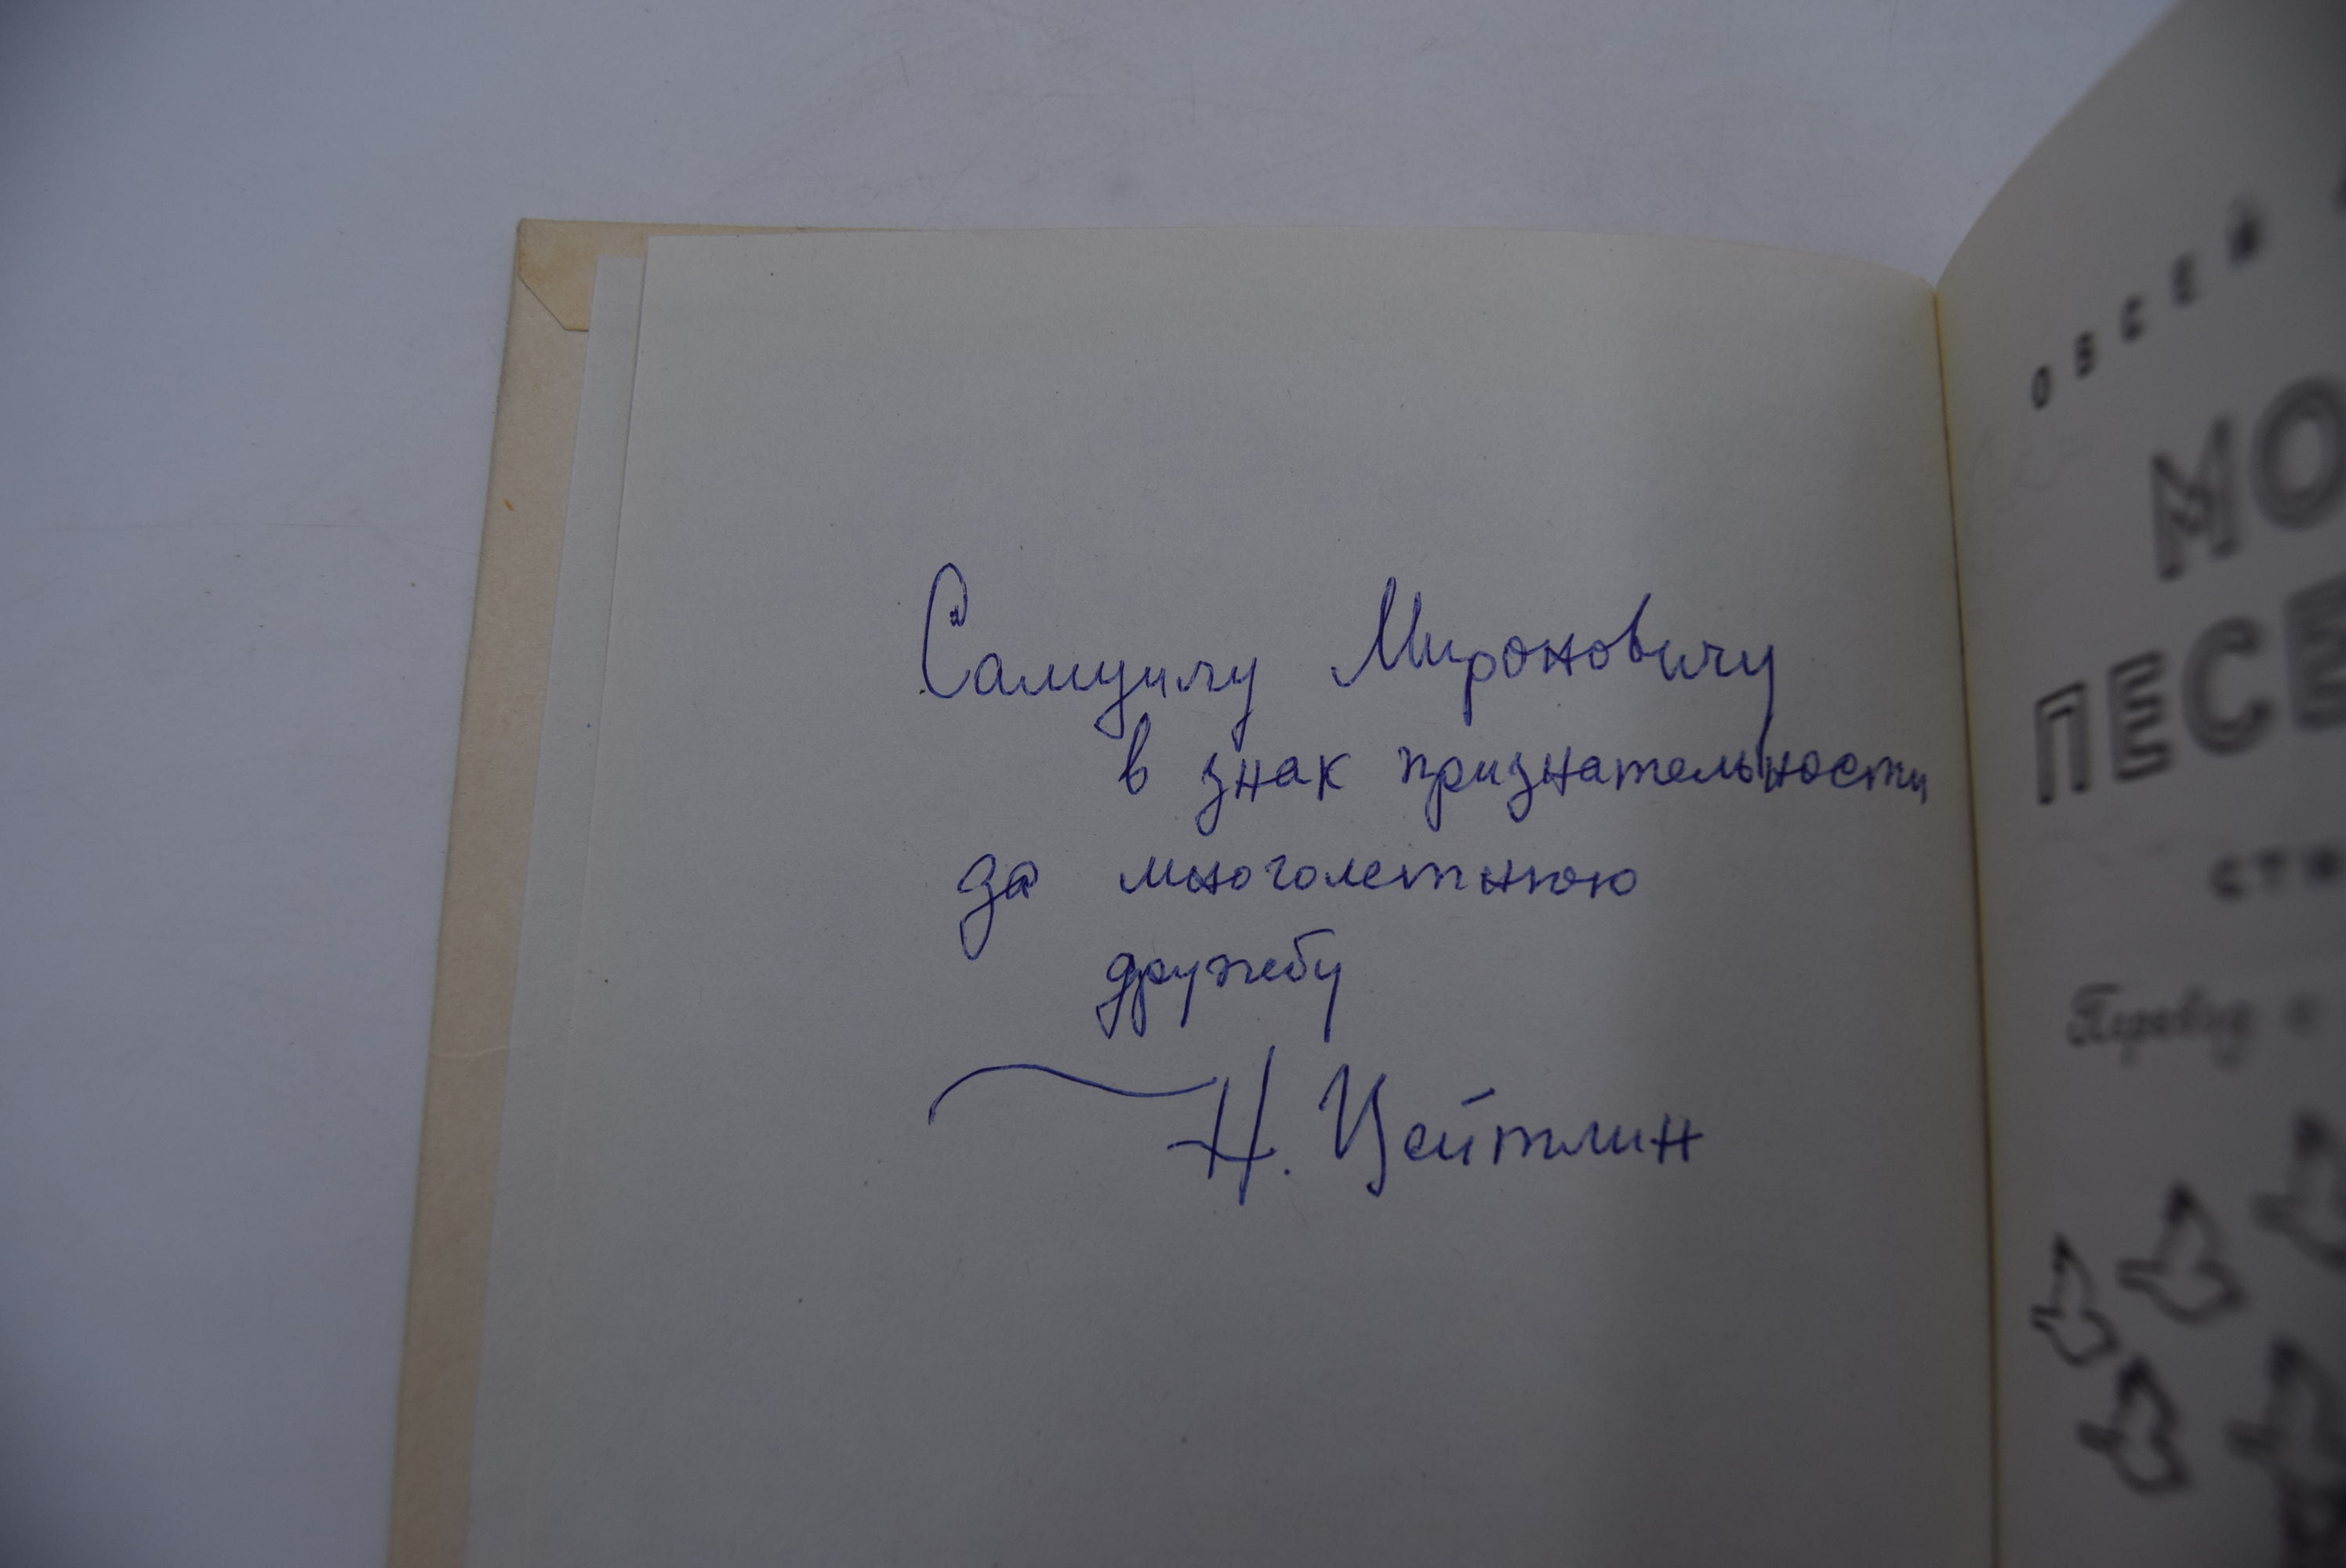 Самуилу Мироновичу
в знак признательности
за многолетнюю
дружбу
Н. Цейтлин
ОВСЕЙ
МО
ПЕСЕ
СТИ
Перевод с